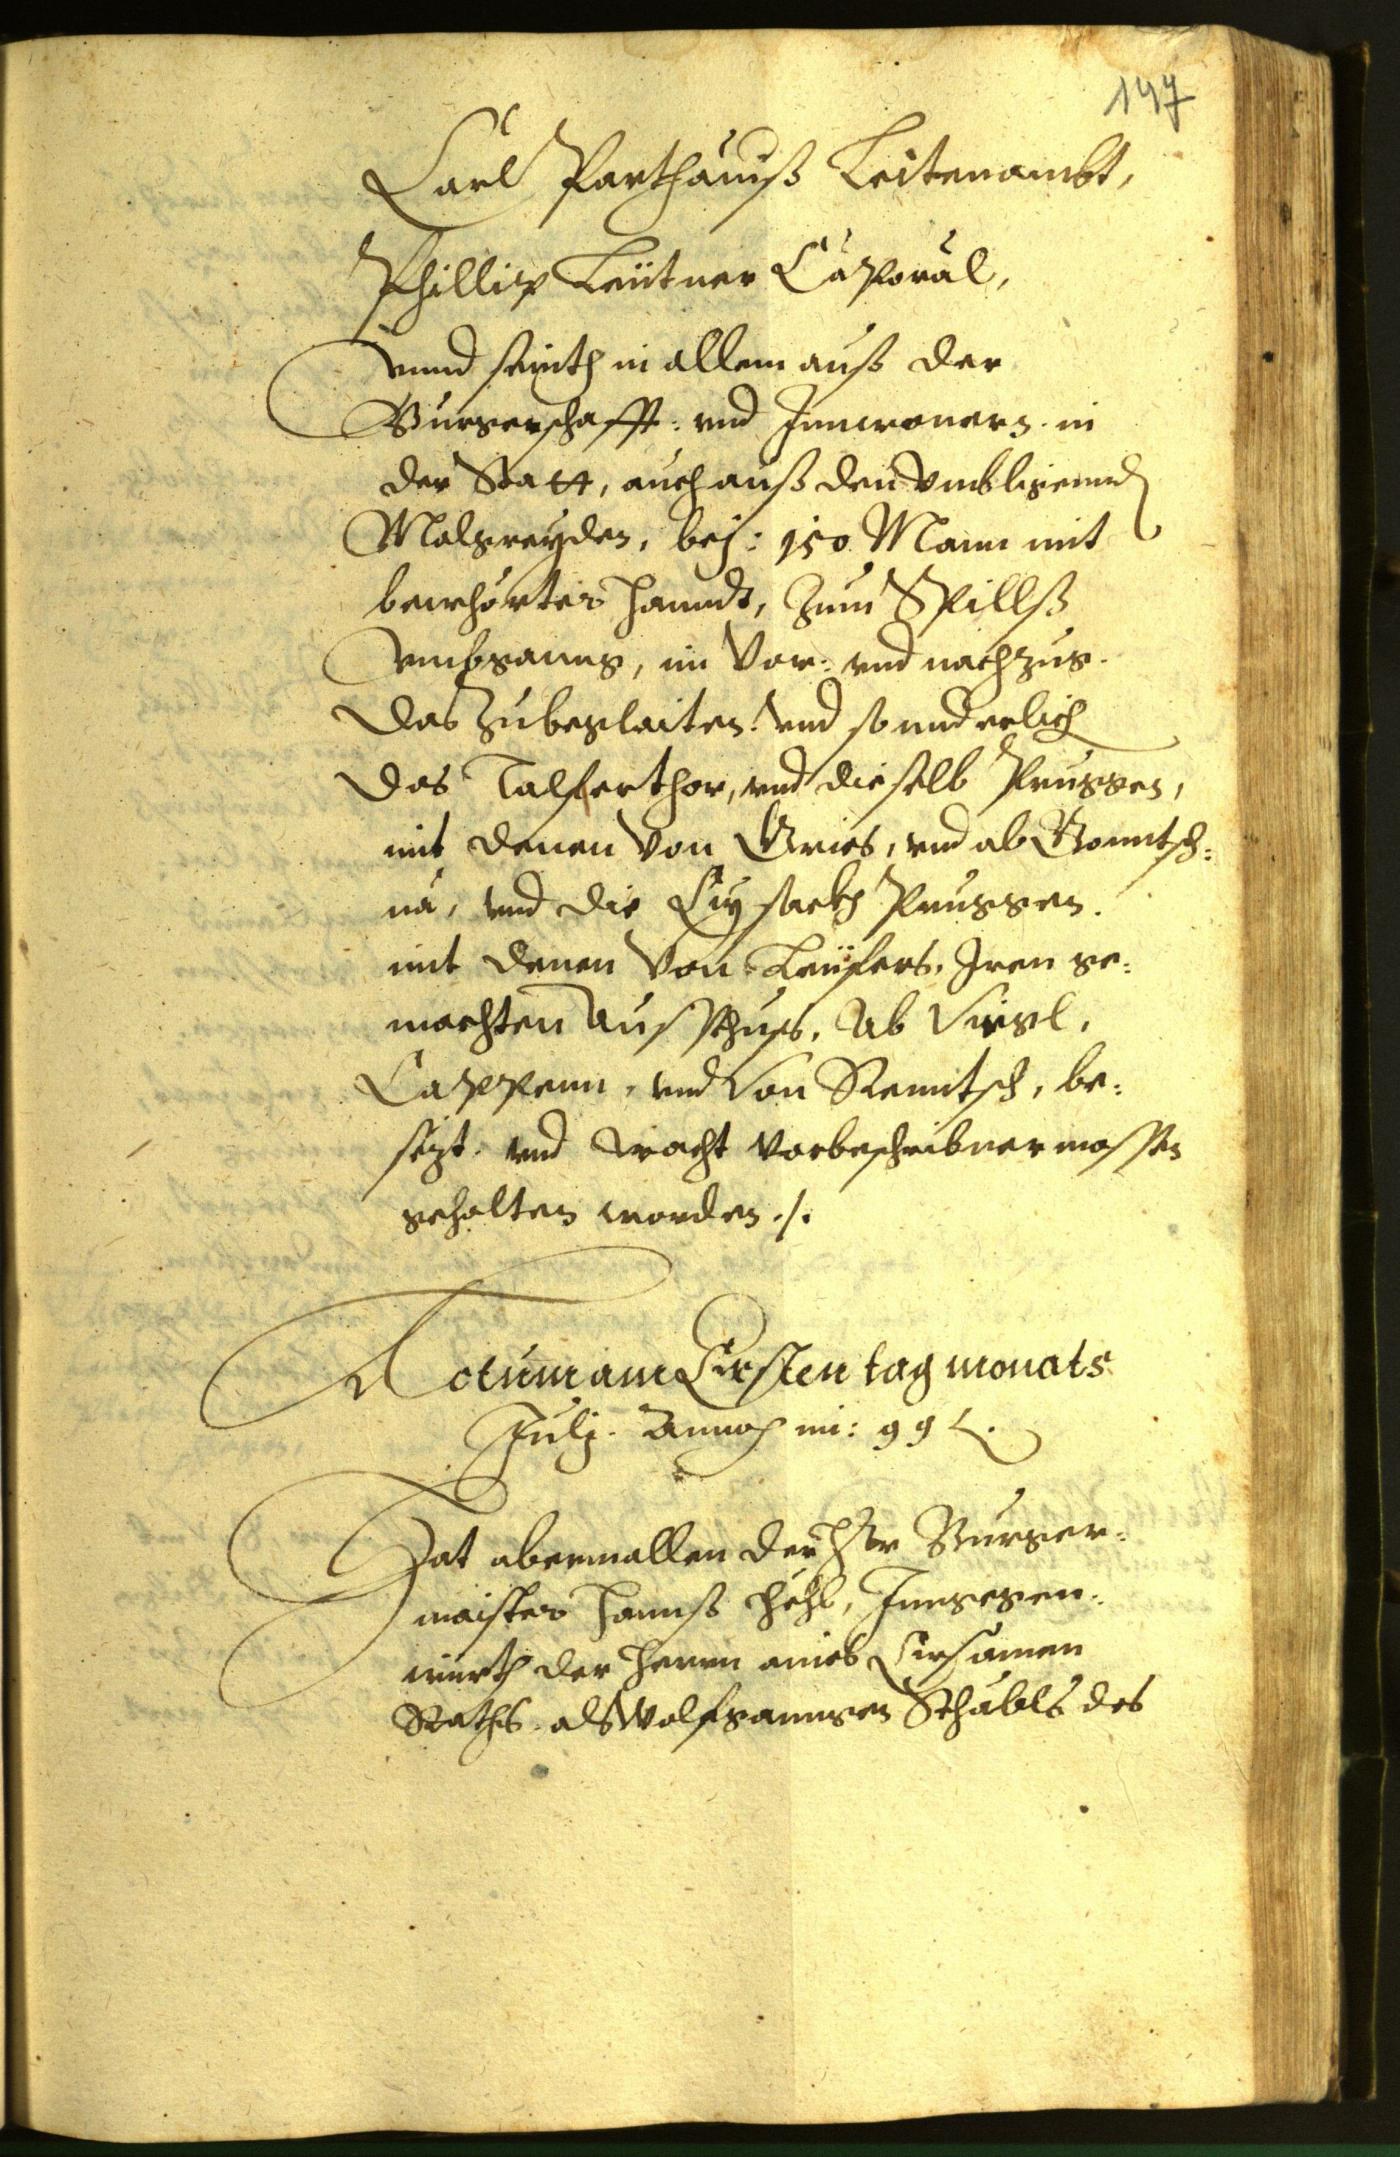 147
Carl Parthauiß Leitenambt,
Phillip Leütner Caporal,
vnnd seinth in allem auß der
Burgerschafft: vnd Innwonern. in
der Statt, auch auß den vmbligennd
Malgreyden, bej: 150 Mann mit
bewhörter Hanndt, Zum Spillß
vmbganng, im Vor: vnd nachzug.
das zubeglaiten. vnd sonnderlich
das Talferthor, vnd dieselb Pruggen,
mit denen von Gries, vnd ab Gonntsch:
na, vnd die Eysackh Pruggen.
mit denen von Leüfers, Iren ge:
machten Ausschuss, Ab Virgl,
Camppenn, vnd von Renntsch, be:
sezt. vnd wacht vorbeschribnermassen
gehalten worden ./.
Actum am Ersten tag monats
Julj. Anno im: 99 .
Hat abermallen der Herr Burger:
maister Hannß , Inngegen:
würth der Herrn aines Ersamen
Raths. als Wolfganngen Schäbls des